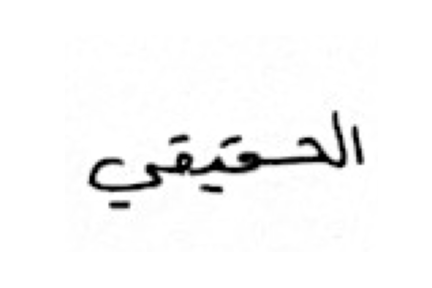 الحقيقي